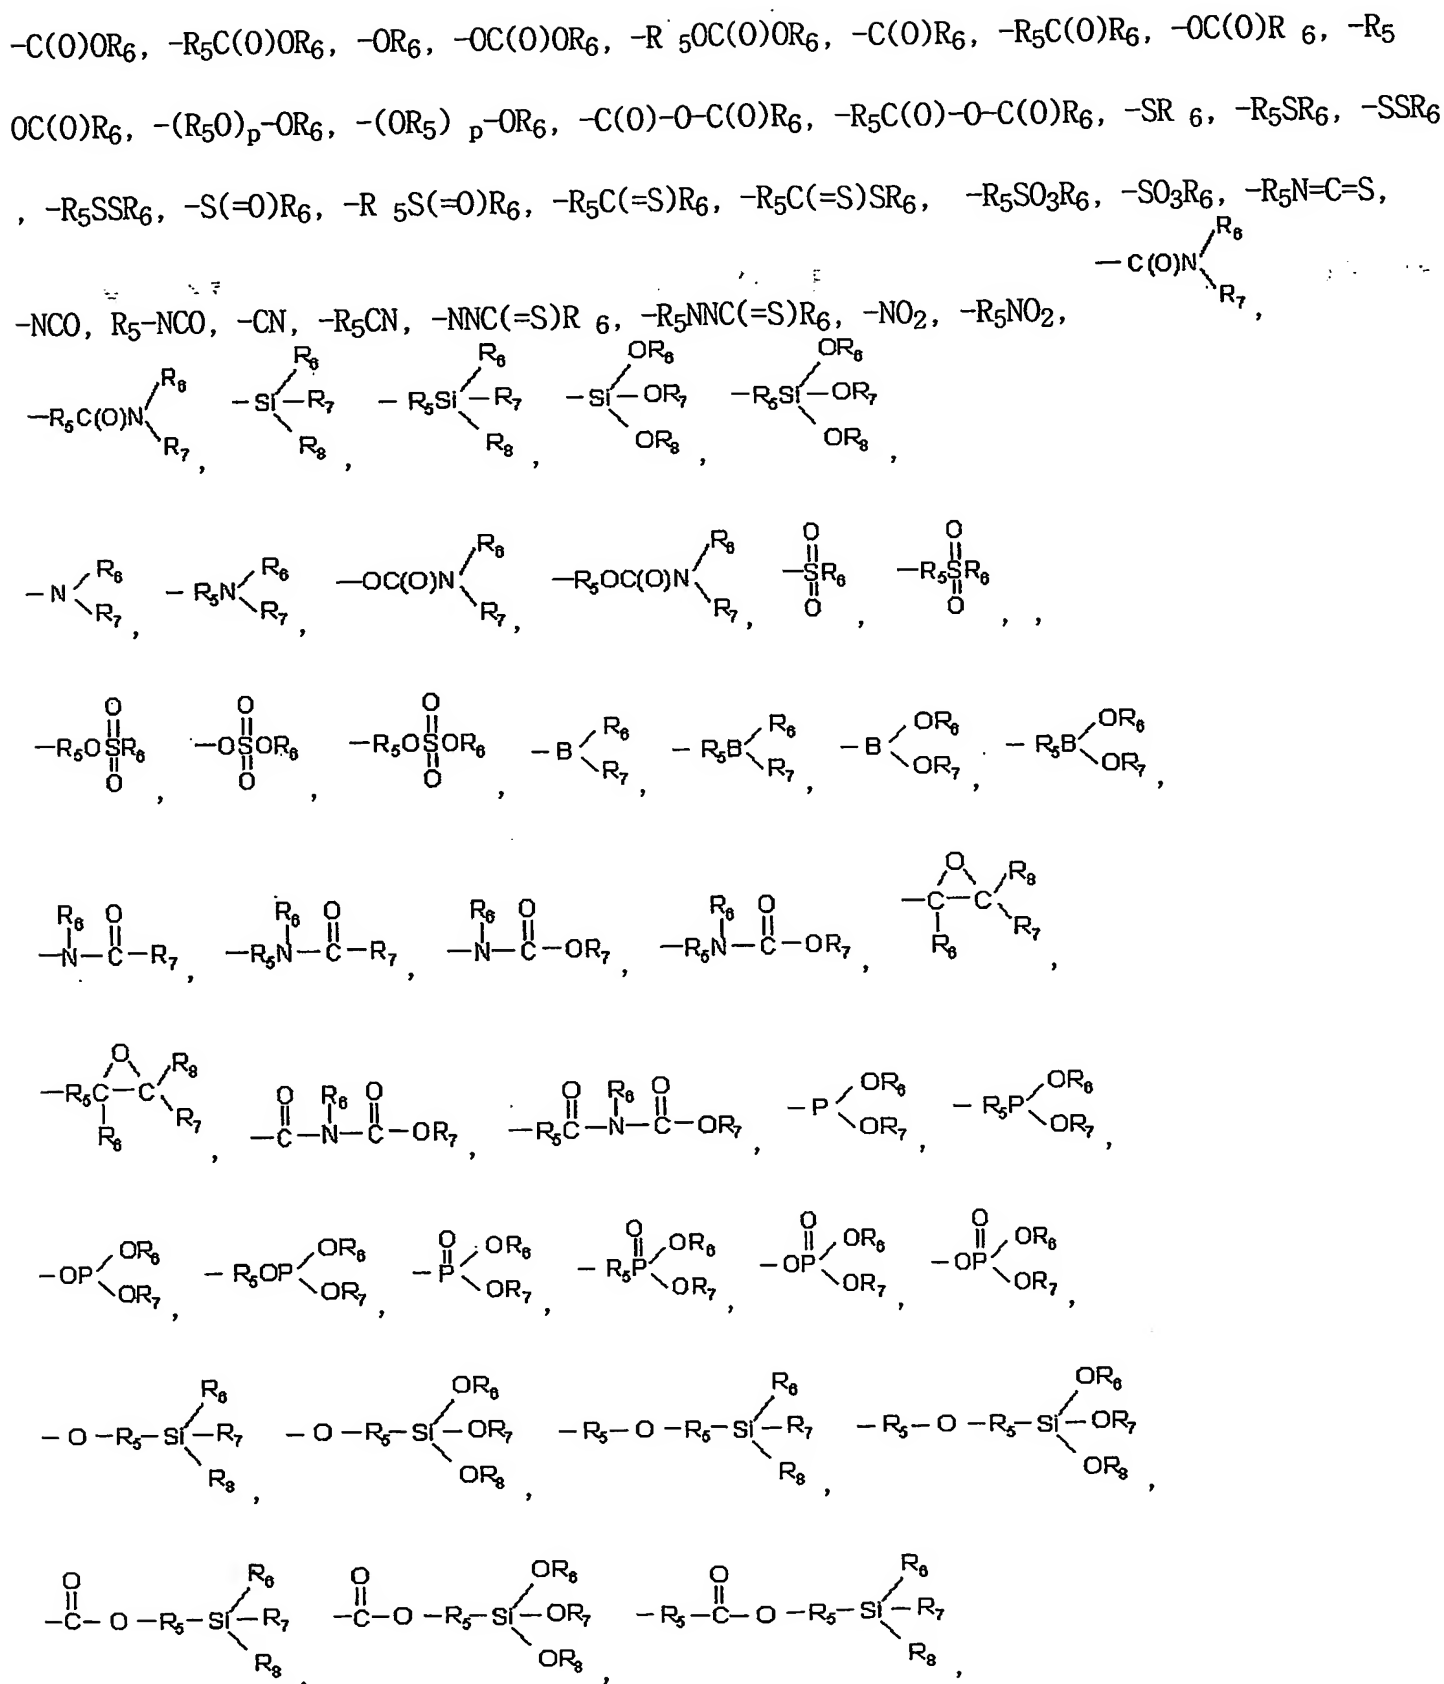 -C(O)OR6, -R5C(O)OR6, -OR6, -OC(O)OR6, -R 5OC(O)OR6, -C(O)R6, -R5C(O)R6, -OC(O)R 6, -R5
OC(O)R6, -(R5O)p-OR6, -(OR5) p-OR6, -C(O)-O-C(O)R6, -R5C(O)-O-C(O)R6, -SR 6, -R5SR6, -SSR6
, -R5SSR6, -S(=O)R6, -R 5S(=O)R6, -R5C(=S)R6, -R5C(=S)SR6, -R5SO3R6, -SO3R6, -R5N=C=S,
-NCO, R5-NCO, -CN, -R5CN, -NNC(=S)R 6, -R5NNC(=S)R6, -NO2, -R5NO2, -C(O)N R6 R7,
-R5C(O)N R6 R7, -Si R6 R7 R8, -R5Si R6 R7 R8, -Si OR6 OR7 OR8, -R5Si OR6 OR7 OR8,
-N R6 R7, -R5N R6 R7, -OC(O)N R6 R7, -R5OC(O)N R6 R7, -S O O R6, -R5S O O R6, ,
-R5OS O O R6, -OS O O OR6, -R5OS O O OR6, -B R6 R7, -R5B R6 R7, -B OR6 OR7, -R5B OR6 OR7,
-N R6 -C O -R7, -R5N R6 -C O -R7, -N R6 -C O -OR7, -R5N R6 -C O -OR7, -C O C R6 R8 R7,
-R5C O C R6 R8 R7, -C O -N R6 -C O -OR7, -R5C O -N R6 -C O -OR7, -P OR6 OR7, -R5P OR6 OR7,
-OP OR6 OR7, -R5OP OR6 OR7, -P O OR6 OR7, -R5P O OR6 OR7, -OP O OR6 OR7, -OP O OR6 OR7,
-O-R5-Si R6 R7 R8, -O-R5-Si OR6 OR7 OR8, -R5-O-R5-Si R6 R7 R8, -R5-O-R5-Si OR6 OR7 OR8,
-C O -O-R5-Si R6 R7 R8, -C O -O-R5-Si OR6 OR7 OR8, -R5-C O -O-R5-Si R6 R7 R8,